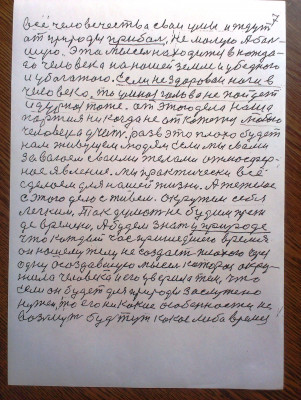 7
всё человечества свои умы и ждут
от природы прибал, не малую, а боль
шую. Эта мысль находится в кажда
го человека на нашей земли и убедного
и убогатого. Если не здоровая нога в
человека, то умная голова не пойдет
и дурная тоже. от этого дела наша
партия никогда не откажет любого
человека учить, разве это плохо будет
нам живущем людям если мы сами
завогаем своими телами относпред-
ное явление. мы практически всё
сделаем для нашей жизни. А тяжолое
с этого дело сживем. окружим себя
легким. Так думать не будим преж
де времено, а будем знать и природе
что каждый час пришедшего время
он нашему телу не создает плохого еще
одну создавшую мысль которая окру-
жила человека и его уверила тим, что
если он будет для природы заслужено
нужен, то его никакие особенности не
возмут будут какое либо время